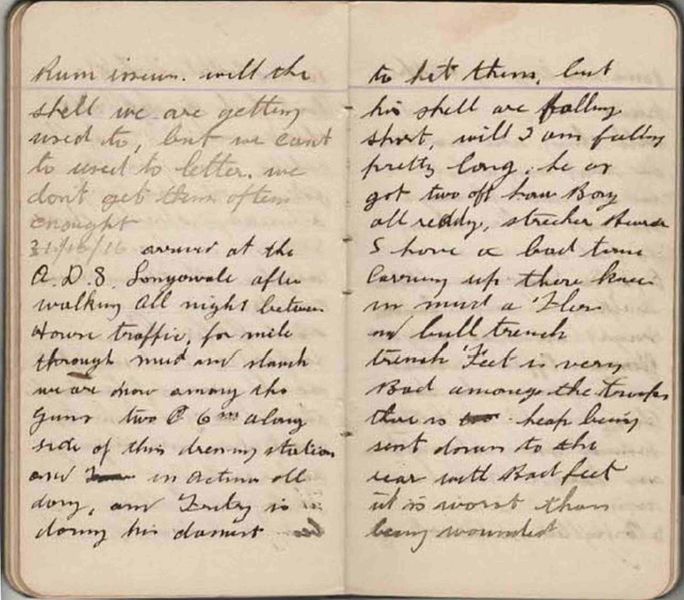 Rum issue. well the
shell we are getting
used to, but we cant
to used to letter. we
don't get them often
enought
31/10/16 arrived at the
A.D.S. Longuevale after
walking all night between
House traffic, for mile
through mud and slauch
we are now among the
guns two 6 along
side of this dressing station
and in action all
day, and Fritz is
doing his damest
to het them, but
his shell are falling
short, will I am falling
pretty long, he as
got two off hour Boys
all reddy, strecher Bearer
have a bad time
Carrying up there knees
in mud a Flers
and bull trench
trench Feet is very
Bad amongs the troops
there is heap being
sent down to the
rear with Bad feet
it is worst than
being wounded